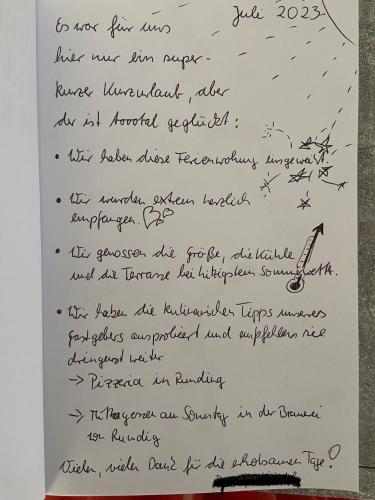 Juli 2023
Es war für uns
hier nur ein super-
kurzer Kurzurlaub, aber
der ist toootal geglückt:
• Wir haben diese Ferienwohnung eingeweiht.
• Wir wurden extrem herzlich
empfangen.
• Wir genossen die Größe, die Kühle
und die Terrasse bei hitzigstem Sommerwetter.
• Wir haben die kulinarischen Tipps unseres
Gastgebers ausprobiert und empfehlen sie
dringend weiter
→ Pizzeria in Runding
→ Mittagessen am Sonntag in der Brauerei
von Runding
Vielen, vielen Dank für die erholsamen Tage!